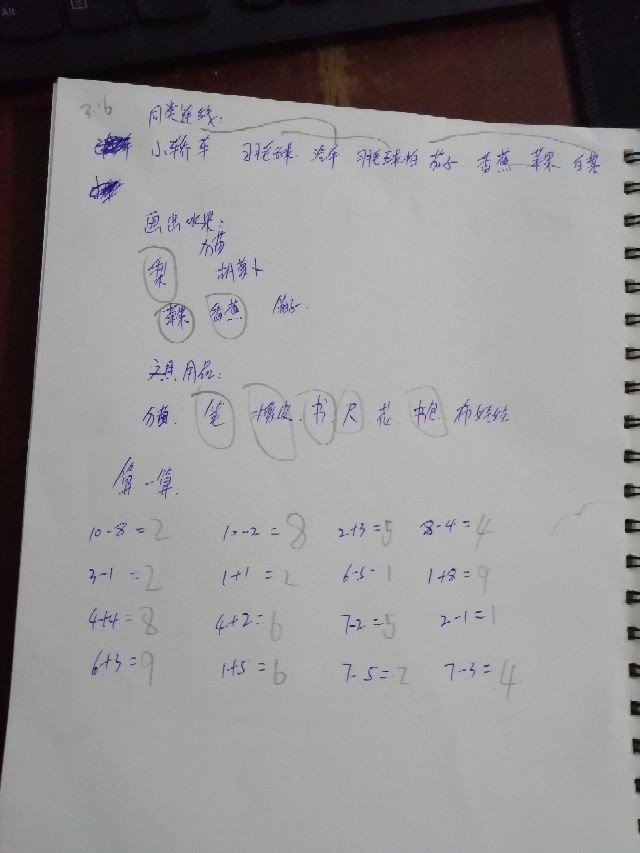 3.16
同类连线:
小轿车 羽毛球 汽车 羽毛球拍 茄子 香蕉 苹果 白菜
画出水果:
方茴
梨 胡萝卜
苹果 香蕉
文具用品:
笔 橡皮 书 尺 花 书包 布娃娃
算一算
10-8=2 10-2=8 2+3=5 8-4=4
3-1=2 1+1=2 6-5=1 1+8=9
4+4=8 4+2=6 7-2=5 2-1=1
6+3=9 1+5=6 7-5=2 7-3=4